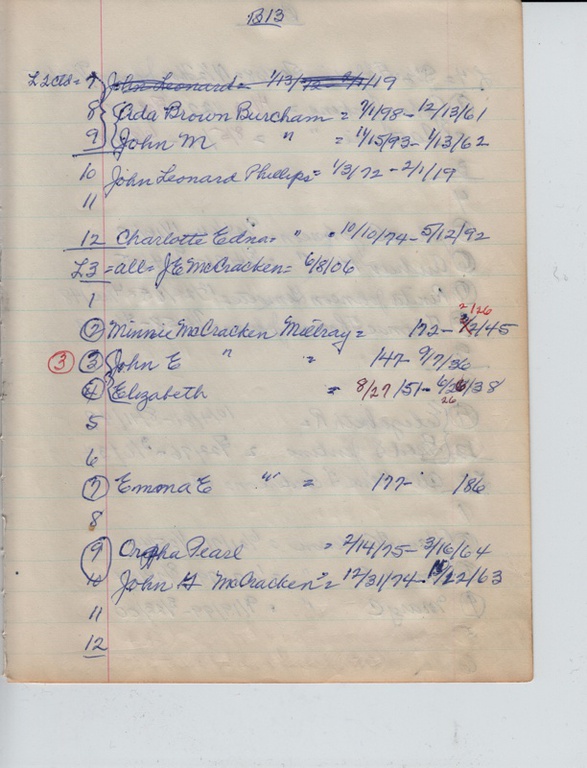 B13
7 John Leonard = 1/13/72 - 2/1/19
8 Ada Brown Burcham = 7/1/98 - 12/13/61
9 John M " = 11/15/93 - 1/13/62
10 John Leonard Phillips = 1/3/72 - 2/1/19
11
12 Charlotte Edna = " = 10/10/74 - 5/12/92
L3 = all = J E McCracken = 6/8/06
1
2 Minnie McCracken = 172 - 2/26 /45
3 3 John E " = 147 - 9/7/36
4 Elizabeth = 8/27/51 - 6/26/38 26
5
6
7 Emma E " = 177 - 186
8
9 Orpha Pearl = 2/14/75 - 3/16/64
10 John McCracken = 12/31/74 - /22/63
11
12